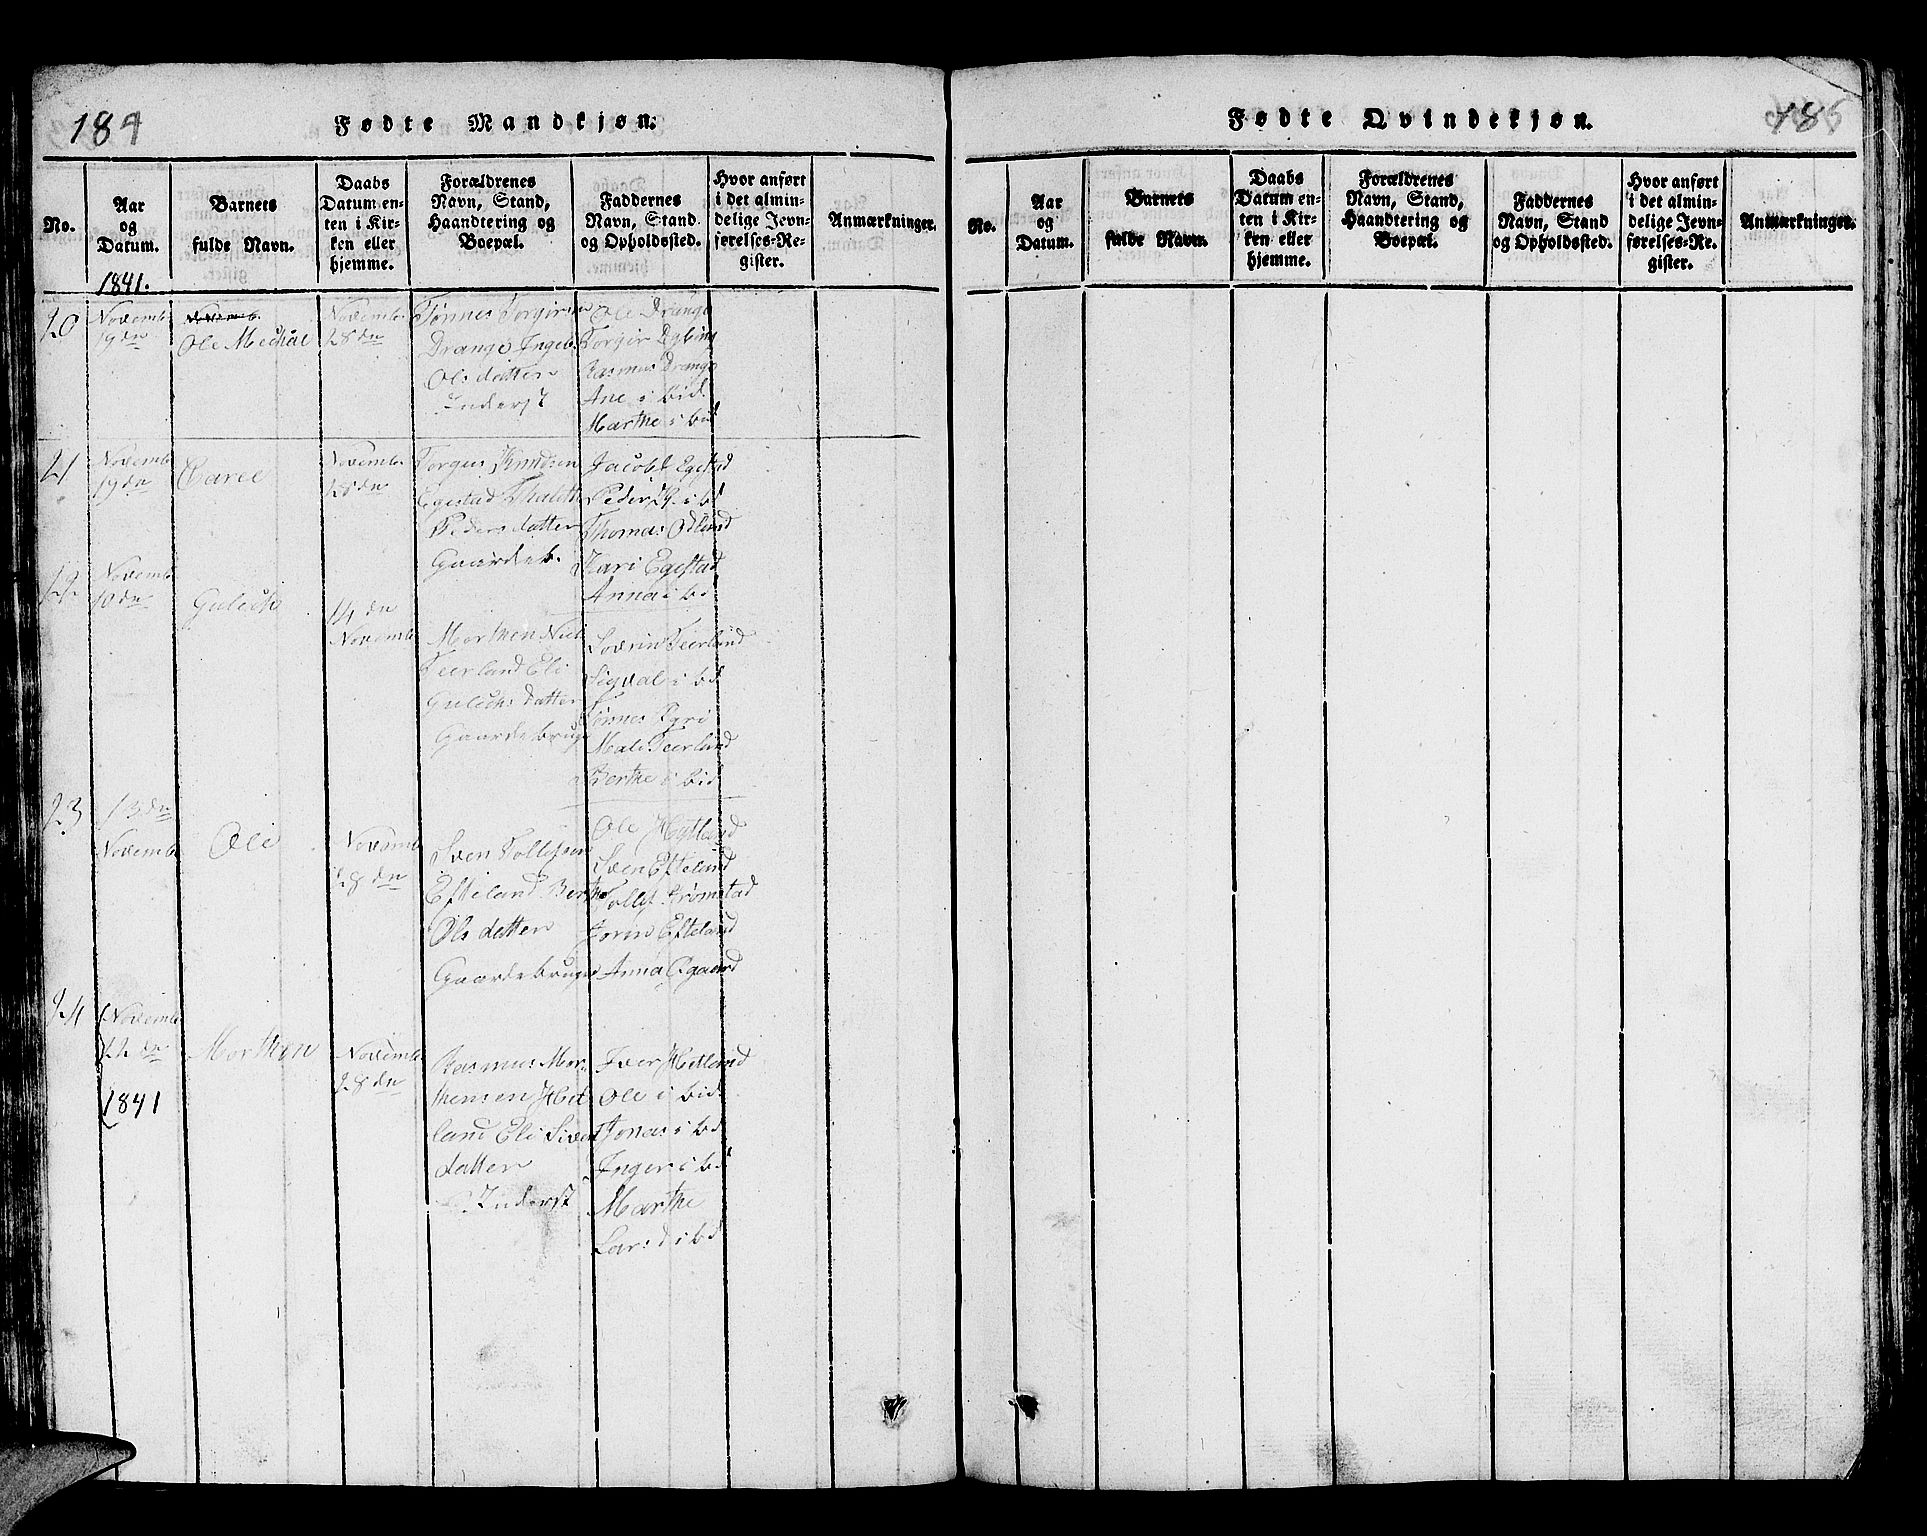 184
Fødte Mandkjøn.
No.
Aar
og
Datum.
Barnets
fulde Navn.
Daabs
Datum en-
ten i Kir-
ken eller
hjemme.
Forældrenes
Navn, Stand,
Haandtering og
Boepæl.
Faddernes
Navn, Stand
og Opholdssted.
Hvor anført
i det almin-
delige Jevn-
førelses-Re-
gister.
Anmærkninger.
1841.
20
Novemb.
19dn
Ole Mechal
Novemb.
28dn
Tønnes Torgirsen
Drange Ingeb.
Olsdatter
Inderst
Ole Drange
Torgir Dybing
Rasmus Drange
Ane i bid.
Marthe i bid
21
Novemb.
19dn
Novemb.
28dn
Torgus Knudsen
Egestad Thalette
Pedersdatter
Gaardeb.
Jacob Egestad
Peder i bd
Thomas Odland
Kari Egestad
Anna i bd
22
Novemb.
10dn
Gulech
14dn
Novemb.
Morthen Niel
Feerland Eli
Gulechsdatter
Gaardebruge
Soverin Feerland
Sigval i bd
Tønnes Fyri
Mali Feerland
Berthe i bid
23
13dn
Novemb.
Ole
Novemb.
28dn
Sven Tollefsen
Efteland Berthe
Olsdatter
Gaardebruger
Ole Hytland
Sven Efteland
Tollef Strømstad
Joren Efteland
Anna Øgaard
24
Novemb.
22dn
1841
Morthen
Novemb.
28dn
Rasmus Mor-
thensen Het-
land Eli Siverts
datter
Inderst
Iver Hetland
Ole i bid.
Jonas i bd
Inger i bd
Marthe
Larsd i bd
185
Fødte Qvindekjøn.
No.
Aar
og
Datum.
Barnets
fulde Navn.
Daabs
Datum en-
ten i Kir-
ken eller
hjemme.
Forældrenes
Navn, Stand,
Haandtering og
Boepæl.
Faddernes
Navn, Stand
og Opholdssted.
Hvor anført
i det almin-
delige Jevn-
førelses-Re-
gister.
Anmærkninger.